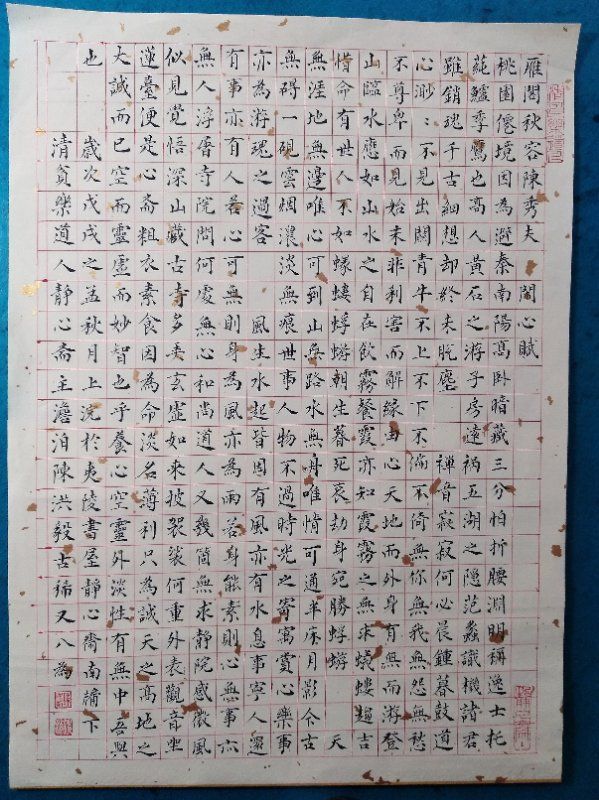 雁閣秋容陳秀夫 閣心賦
桃園僊境因為避秦南陽高臥暗藏三分怕折腰淵明稱逸士托
蒓鱸季鷹也高人黃石之游子房遠禍五湖之隱范蠡識機諸君
雖銷魂千古細想却終未脫塵 禪音寂寂何心晨鍾暮鼓道
心渺〻不見出關青牛不上不下不偏不倚無你無我無怨無愁
不尊卑而見始末非利害而解緣由心天地而外身有無而游登
山臨水應如山水之自在飲霧餐霞亦知霞霧之無求蟻螻趨吉
惜命有世人不如蠓螻蜉蝣朝生暮死哀劫身宛勝蜉蝣 天
無涯地無邊唯心可到山無路水無舟唯情可通半床月影今古
無碍一硯雲烟濃淡無痕世事人物不過時光之寄寓賞心樂事
亦為游魂之過客 風生水起皆因有風亦有水息事寧人還
有事亦有人若心可無則身為風亦為雨若身能素則心無事亦
無人浮屠寺院問何處無心和尚道人又幾箇無求靜院感微風
似見覺悟深山藏古寺多委玄虛如來披袈裟何重外表觀音坐
蓮臺便是心齋粗衣素食因為命淡名薄利只為誠天之高地之
大誠而已空而靈虛而妙智也乎養心空靈外淡性有無中吾與
也 歲次戊戌之孟秋月上浣於夷陵書屋靜心齋南牖下
清貧樂道人靜心齋主澹泊陳洪毅古稀又八為